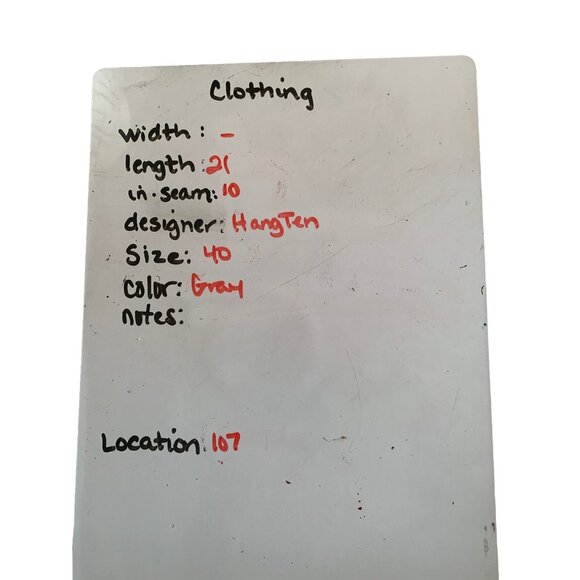 Clothing
width: -
length: 21
in-seam: 10
designer: HangTen
Size: 40
color: Gray
notes:
Location: 107